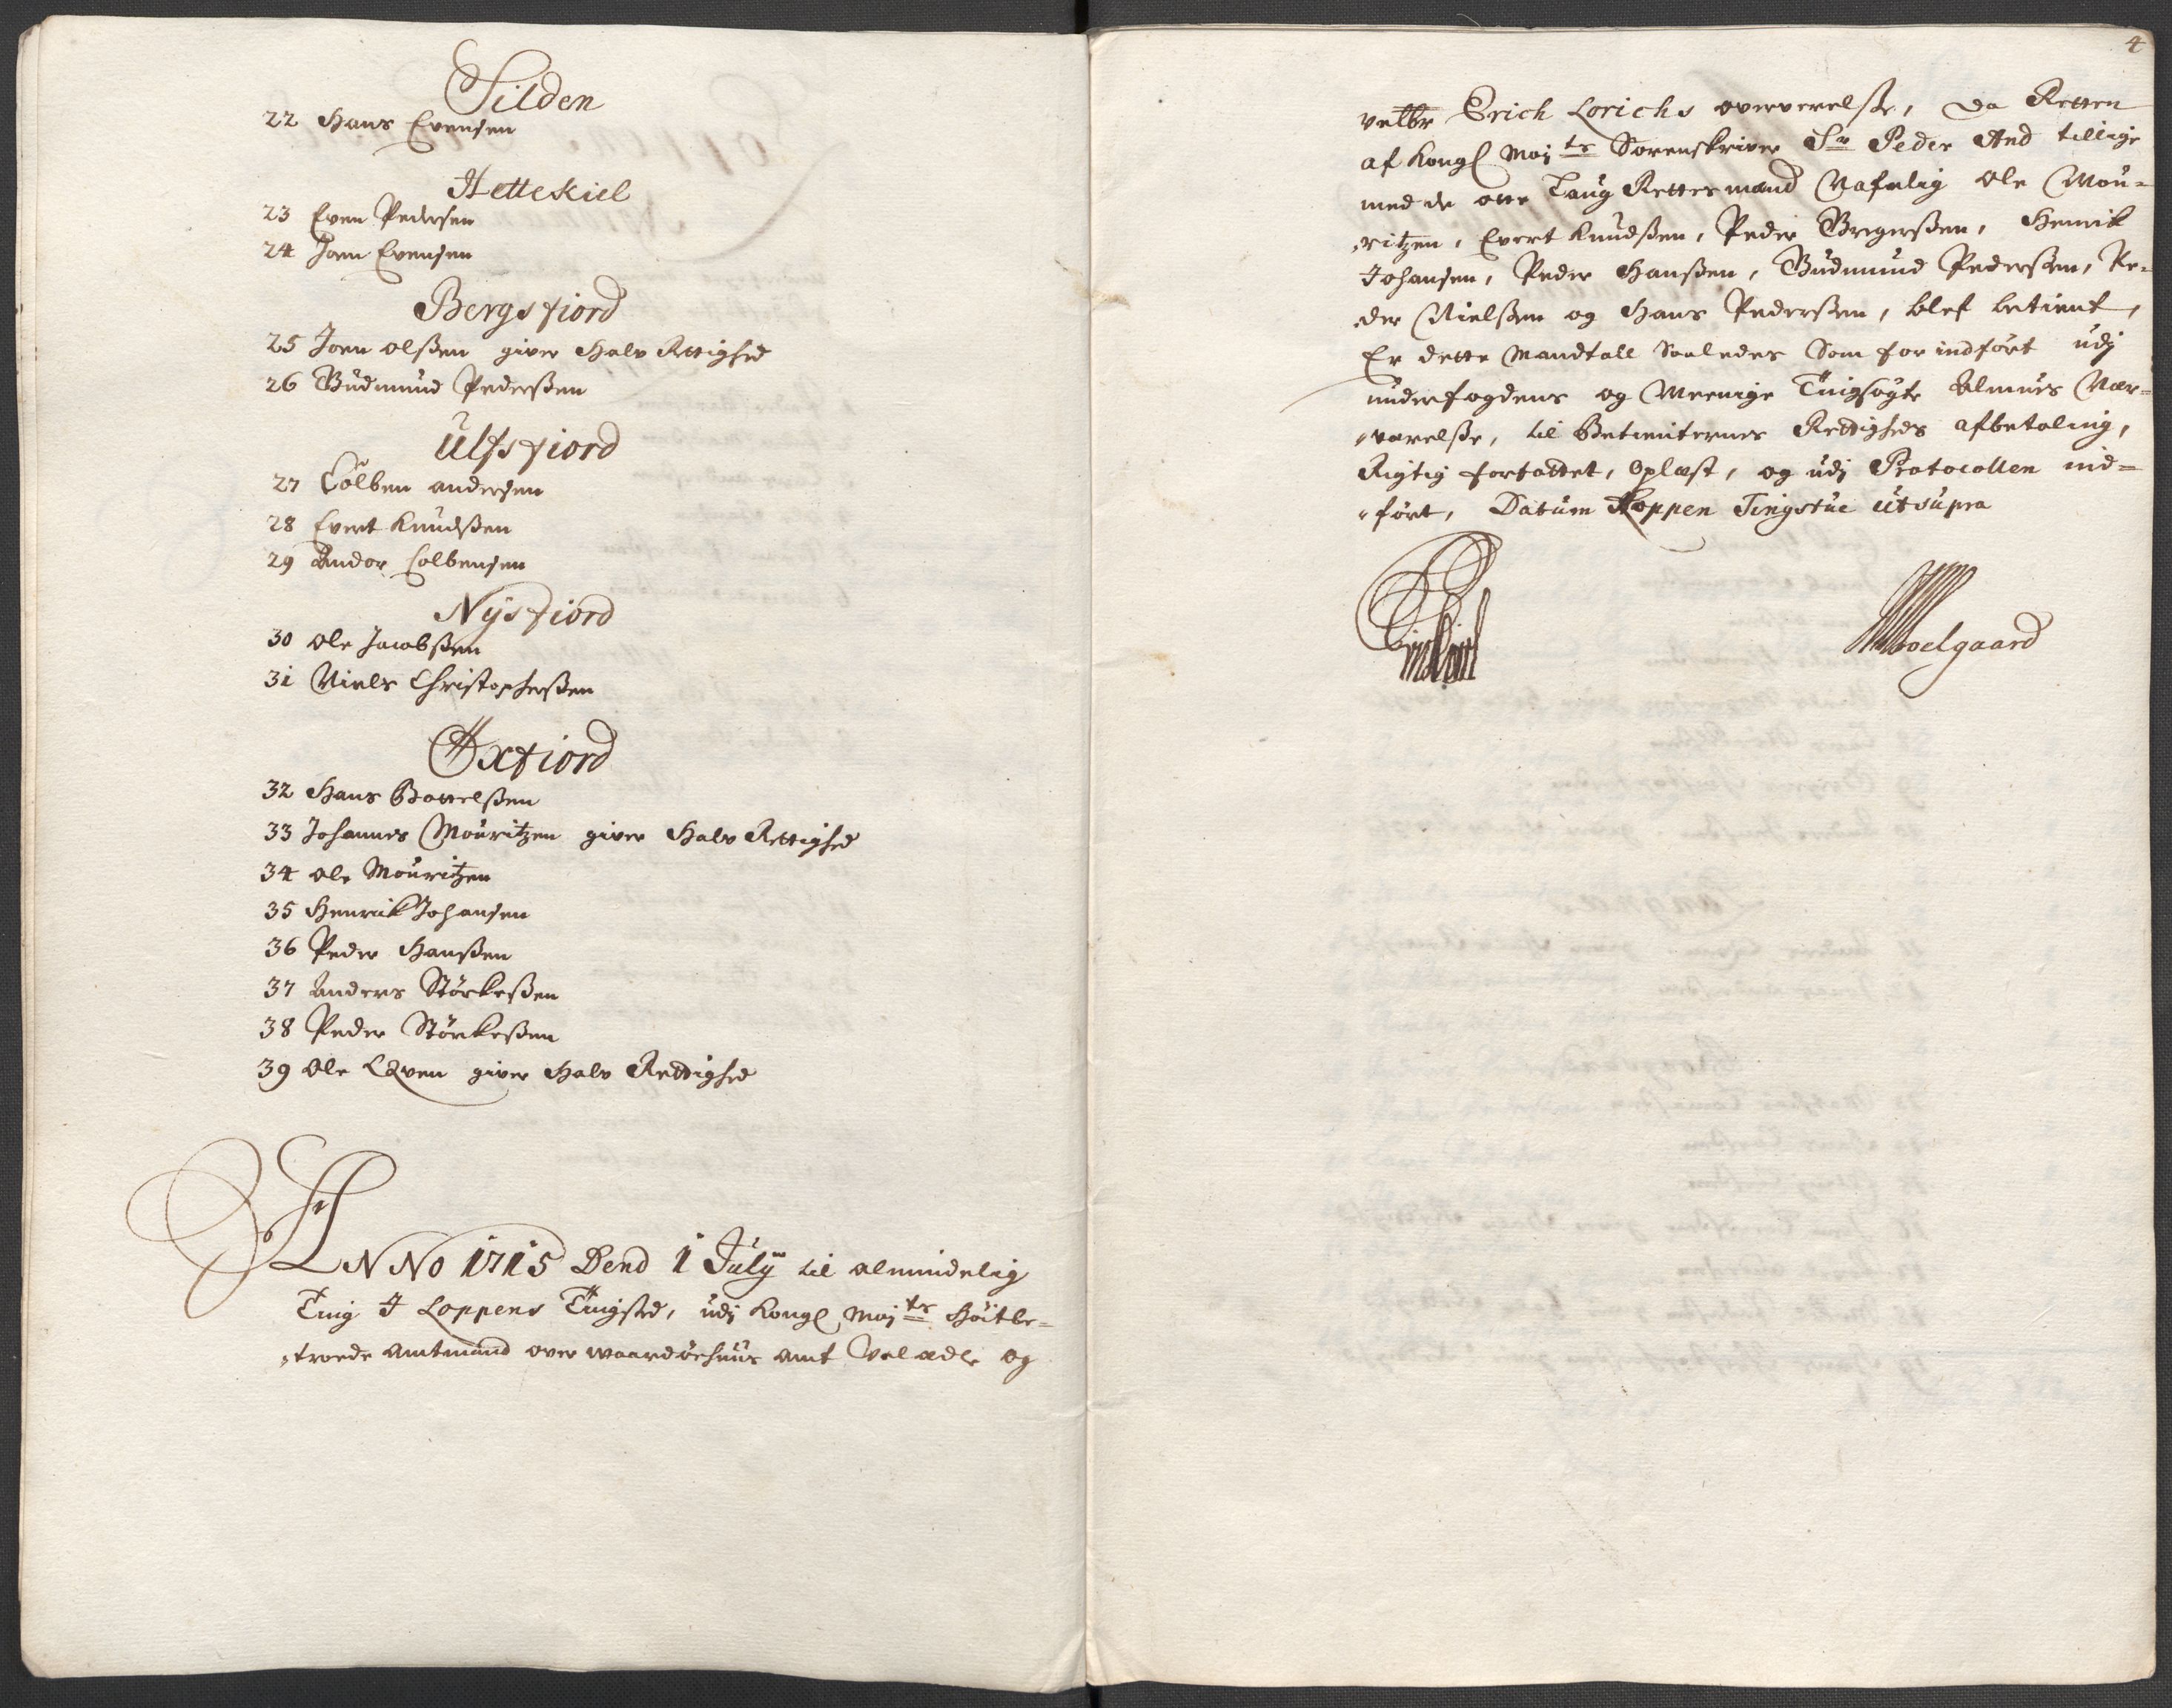 Silden
22 Hans Evensen
Hetteskiel
23 Even Pedersen
24 Joen Evensen
Bergsfiord
25 Joen olßen giver Halv Rettighed
26 Gudmund Pederßen
Ulfsfiord
27 Colben andersen
28 Evert Knudßen
29 Andor Colbensen
Nysfiord
30 Ole Jacobßen
31 Niels Christopherßen
Øxfiord
32 Hans Bottelßen
33 Johannes Mouritzen giver Halv Rettighed
34 Ole Mouritzen
35 Henrik Johansen
36 Peder Hanßen
37 Anders Störkeßen
38 Peder Störkeßen
39 Ole giver Halv Rettighed
ANNo 1715 Dend 1 July til almindelig
Ting I Loppens Tingsted, udj Kongl Maj ts Höitbe=
troede Amtmand over waardöehuus Amt Velædle og
4
velbr Erich Lorichs oververelße, da Retten
af Kongl Maj ts Sorenskriver Sr Peder And tillige
med de otte Laug Rettesmænd Nafnlig Ole Mou=
ritzen, Evert Knudßen, Peder Gregerßen, Henrik
Johansen, Peder Hanßen, Gudmund Pederßen, Pe=
der Nielßen og Hans Pederßen, blef betient,
Er dette Mandtall Saaledes Som for indfört udj
underfogdens og Meenige Tingsøgte Almues Nær=
værelße, til Betienternes Rettigheds afbetaling,
Rigtig forfattet, Oplæst, og udj Protocollen ind=
fört, Datum Loppen Tingstue ut supra
Woelgaard